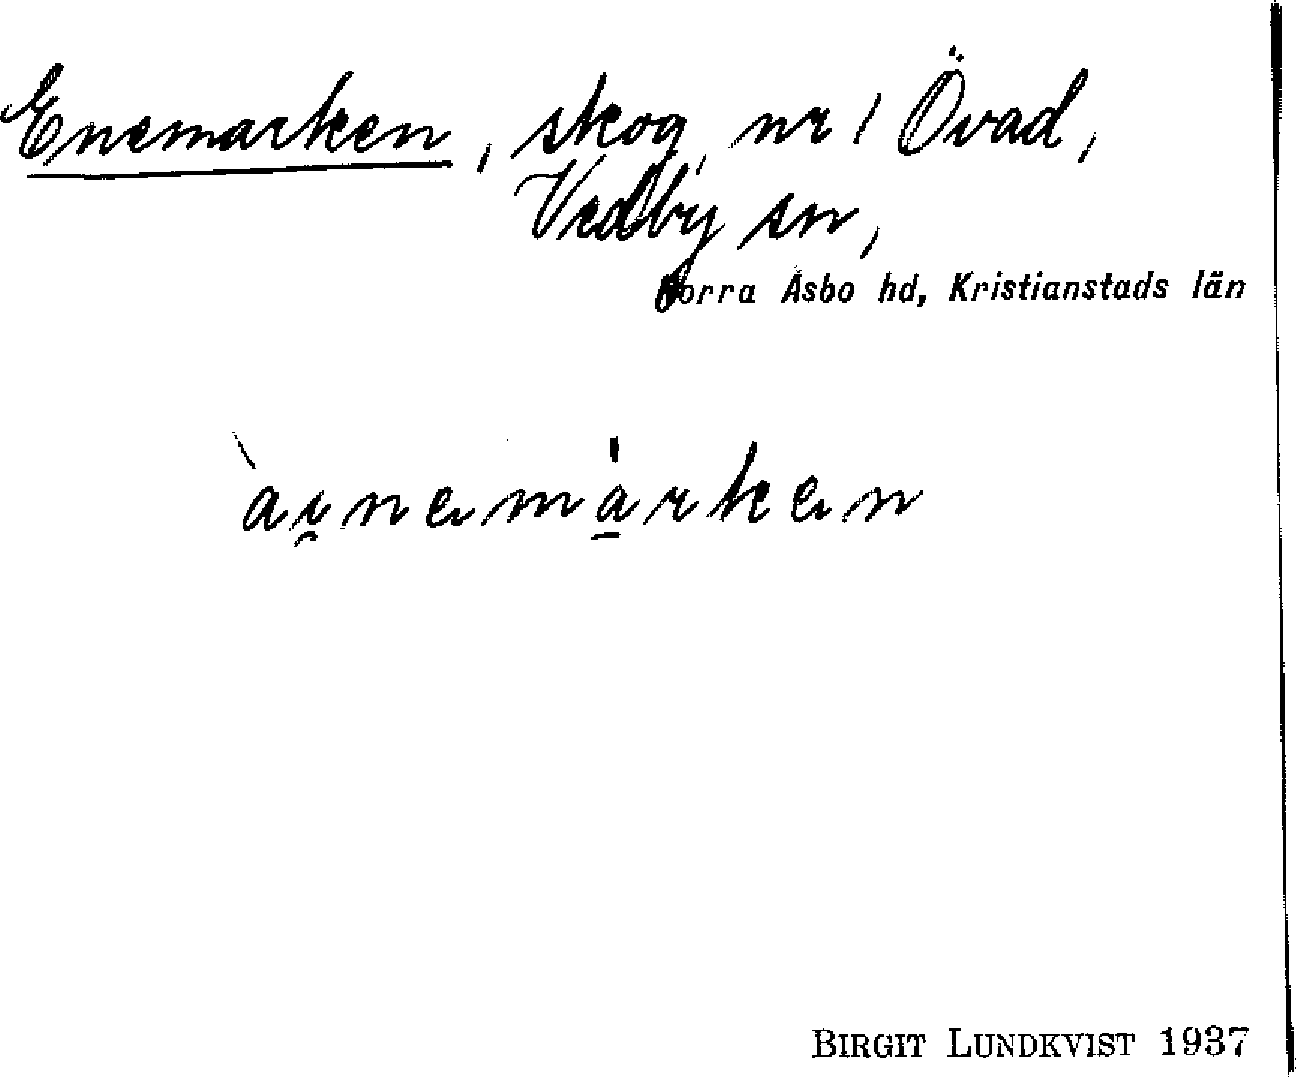 Enemarken, skog, nr 1 Övad,
Vedby sn,
Norra Åsbo hd, Kristianstads län
àınemàrken
BIRGIT LUNDKVIST 1937